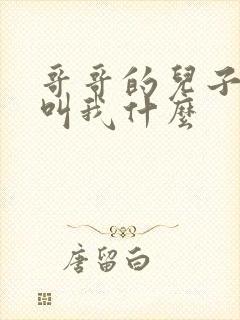 哥哥的兒子
叫我什麼
唐留白